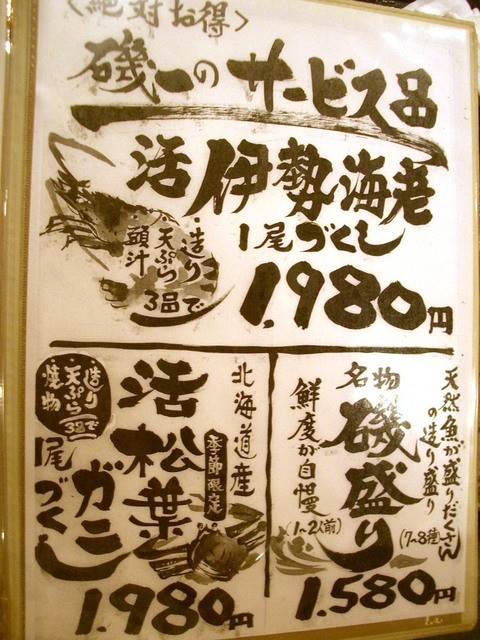 <絶対お得>
磯一のサービス品
活伊勢海老
1尾づくし
造り
天ぷら
頭汁
3品で
1,980円
北海道産
季節限定
活松葉ガニ
1尾づくし
造り
天ぷら
焼物
3品で
1,980円
天然魚が盛りだくさん
の造り盛り
(7~8種)
名物
磯盛り
鮮度が自慢
(1~2人前)
1,580円